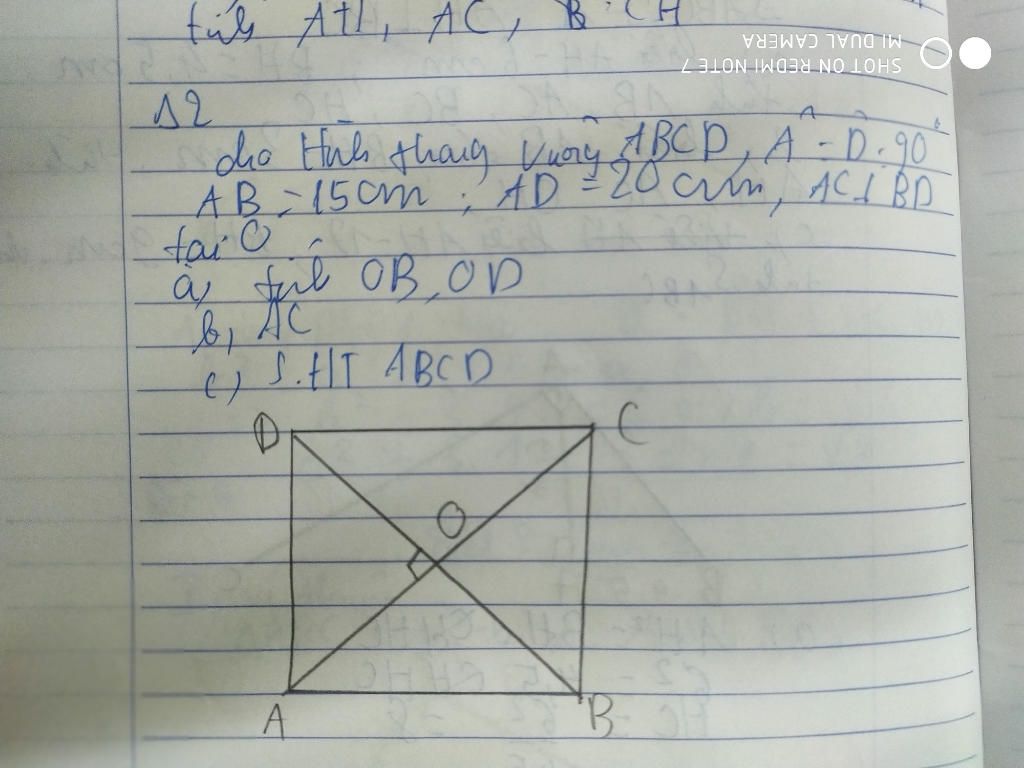 tính AH, AC, B CH
SHOT ON REDMI NOTE 7
MI DUAL CAMERA
12
cho Hình thang vuông ABCD, Â = D̂ . 90°
AB = 15 cm ; AD = 20 cm, AC ⊥ BD
tại O
a, tính OB, OD
b, AC
c, S.HT ABCD
D C
O
A B